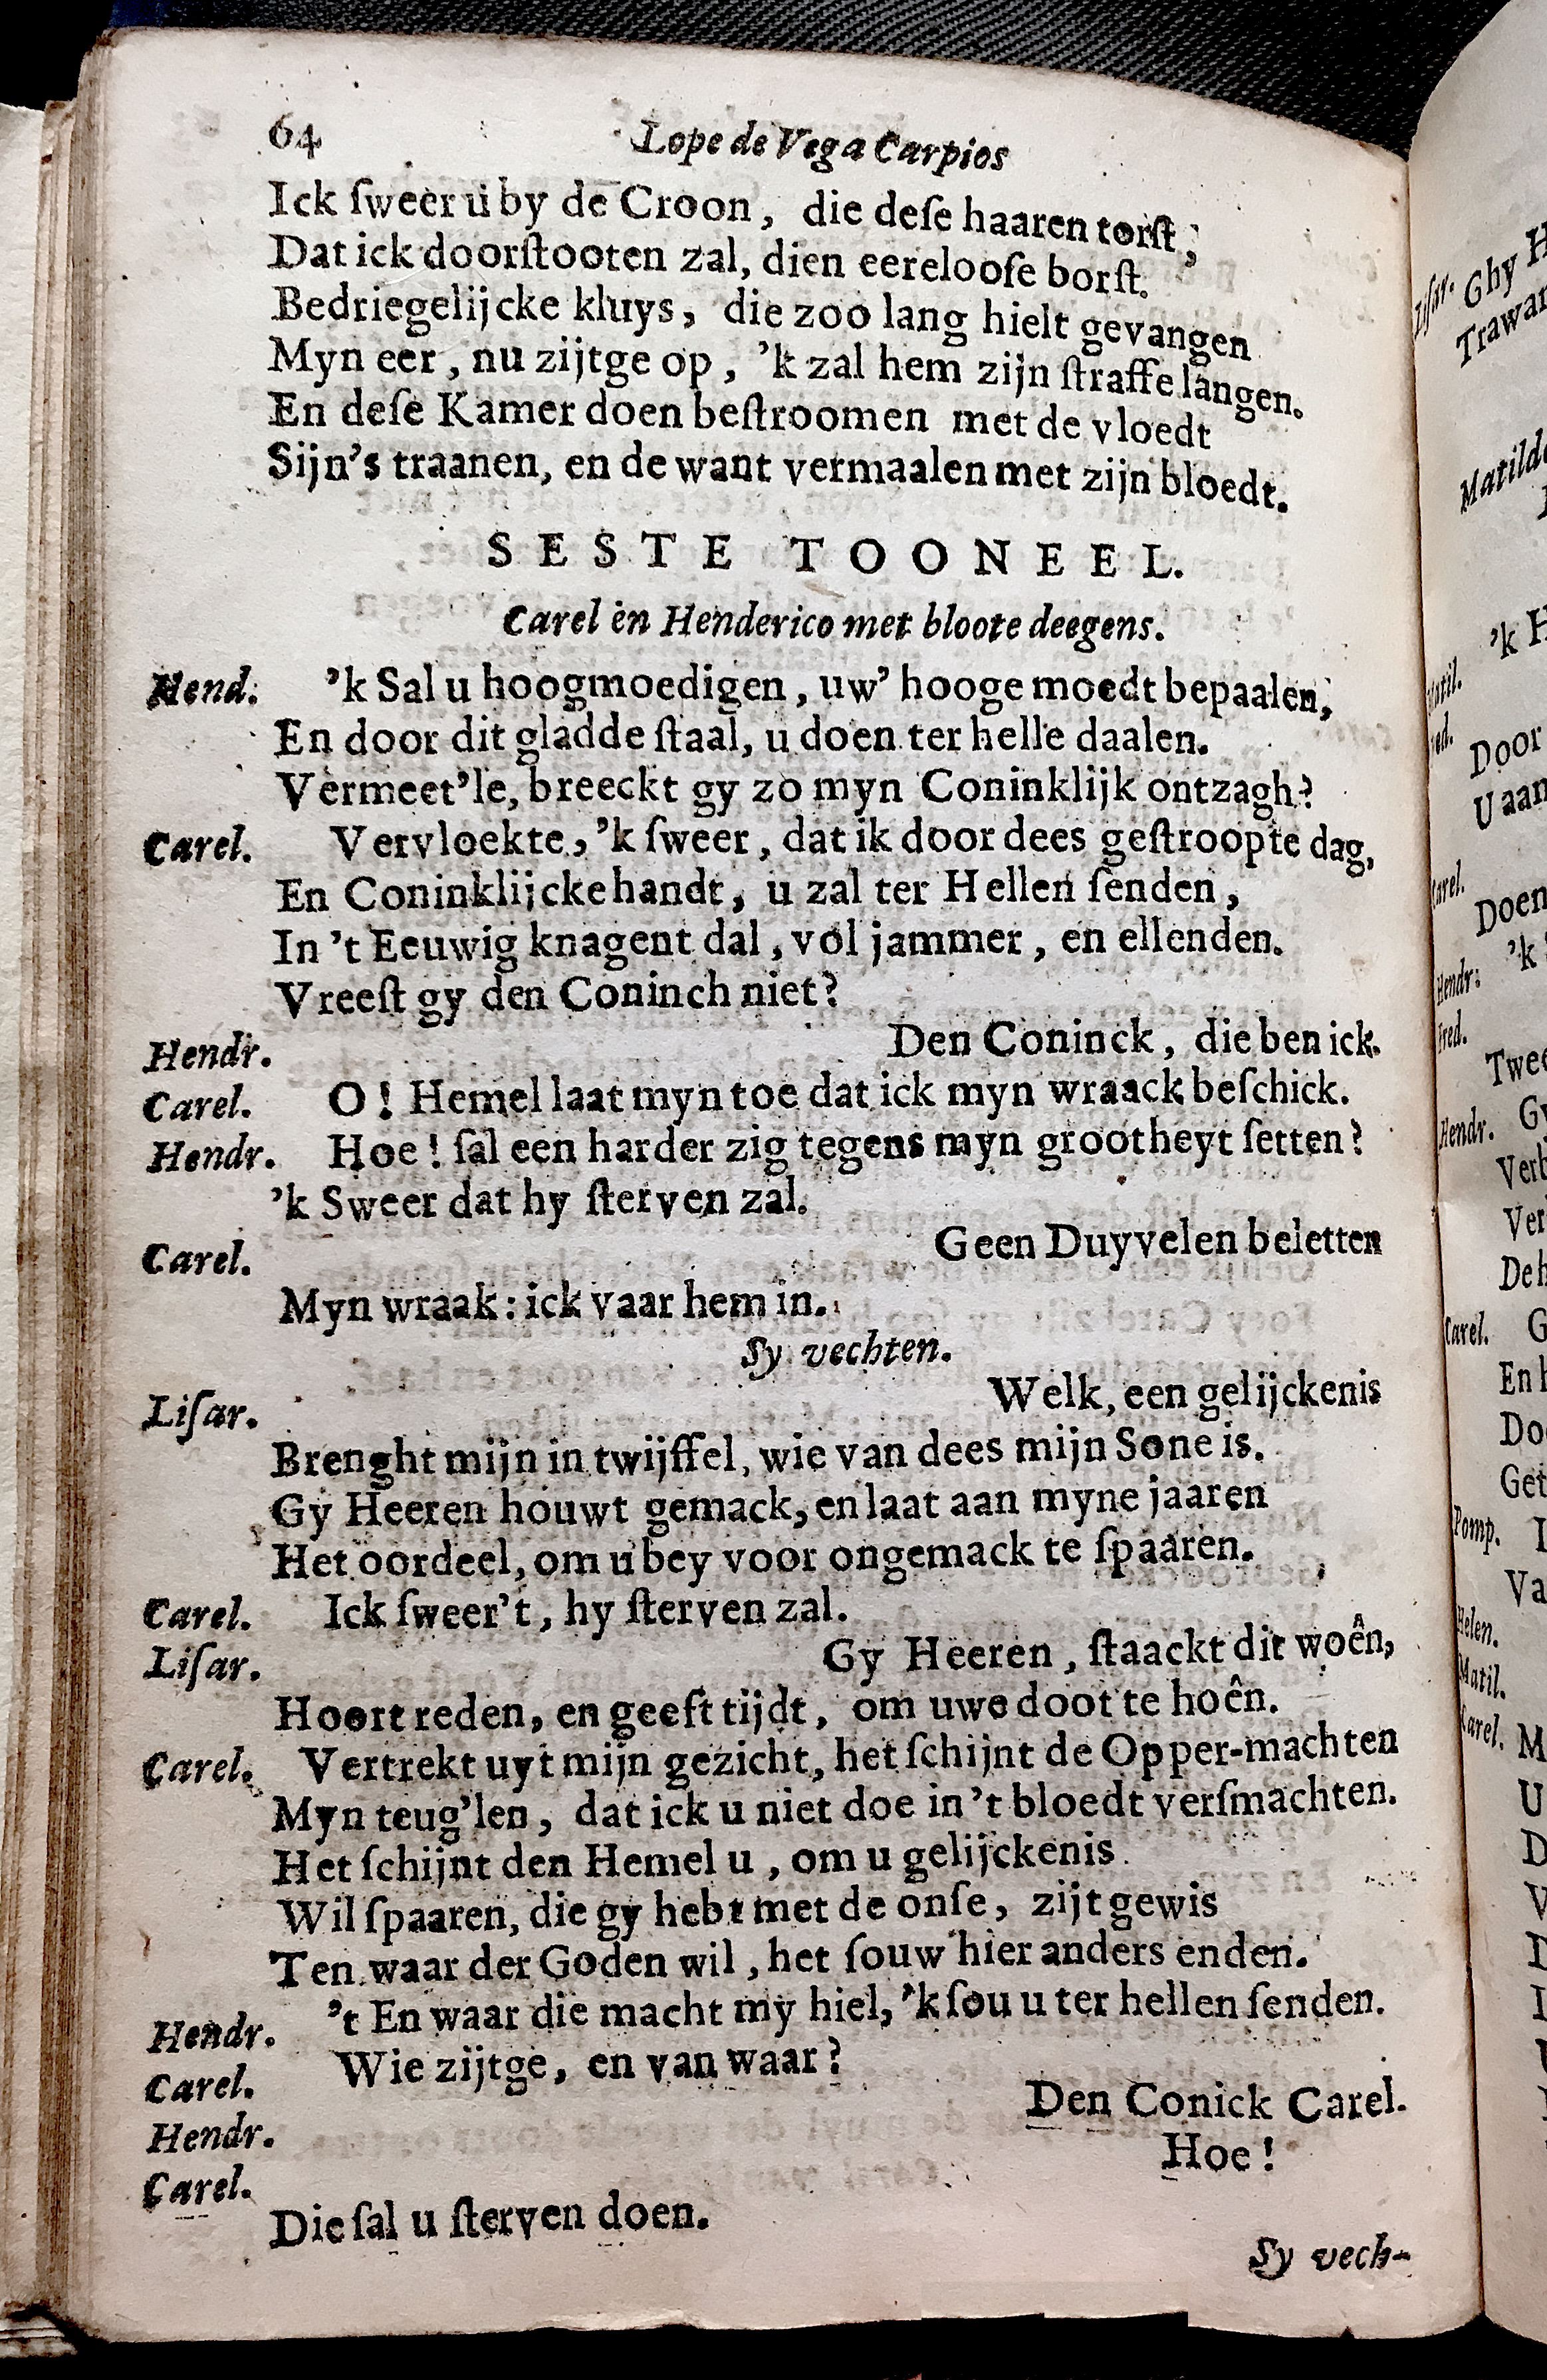 64 Lope de Vega Carpios
Ick ſweer u by de Croon, die deſe haaren torſt,
Dat ick doorſtooten zal, dien eerelooſe borſt.
Bedriegelijcke kluys, die zoo lang hielt gevangen
Myn eer, nu zijtge op, 'k zal hem zijn ſtraffe langen.
En deſe Kamer doen beſtroomen met de vloedt
Sijn's traanen, en de want vermaalen met zijn bloedt.
SESTE TOONEEL.
Carel en Henderico met bloote deegens.
Hend. 'k Sal u hoogmoedigen, uw' hooge moedt bepaalen,
En door dit gladde ſtaal, u doen ter helle daalen.
Vermeet'le, breeckt gy zo myn Coninklijk ontzagh?
Carel. Vervloekte, 'k ſweer, dat ik door dees geſtroopte dag,
En Coninklijcke handt, u zal ter Hellen ſenden,
In 't Eeuwig knagent dal, vol jammer, en ellenden.
Vreeſt gy den Coninch niet?
Hendr. Den Coninck, die ben ick.
Carel. O! Hemel laat myn toe dat ick myn wraack beſchick.
Hendr. Hoe! ſal een harder zig tegens myn grootheyt ſetten?
'k Sweer dat hy ſterven zal.
Carel. Geen Duyvelen beletten
Myn wraak: ick vaar hem in.
Sy vechten.
Liſar. Welk, een gelijckenis
Brenght mijn in twijffel, wie van dees mijn Sone is.
Gy Heeren houwt gemack, en laat aan myne jaaren
Het oordeel, om u bey voor ongemack te ſpaaren.
Carel. Ick ſweer't, hy ſterven zal.
Liſar. Gy Heeren, ſtaackt dit woên,
Hoort reden, en geeft tijdt, om uwe doot te hoên.
Carel. Vertrekt uyt mijn gezicht, het ſchijnt de Opper-machten
Myn teug'len, dat ick u niet doe in 't bloedt verſmachten.
Het ſchijnt den Hemel u, om u gelijckenis
Wil ſpaaren, die gy hebt met de onſe, zijt gewis
Ten waar der Goden wil, het ſouw hier anders enden.
Hendr. 't En waar die macht my hiel, 'k ſou u ter hellen ſenden.
Carel. Wie zijtge, en van waar?
Hendr. Den Conick Carel.
Carel. Hoe!
Die ſal u ſterven doen.
Sy vech-
Liſar. Ghy
Matild
'k
Door
U aan
Doen
'k
Hendr:
Fred.
Twee
Hendr. Gy
Carel.
Pomp.
Va
Helen.
Matil.